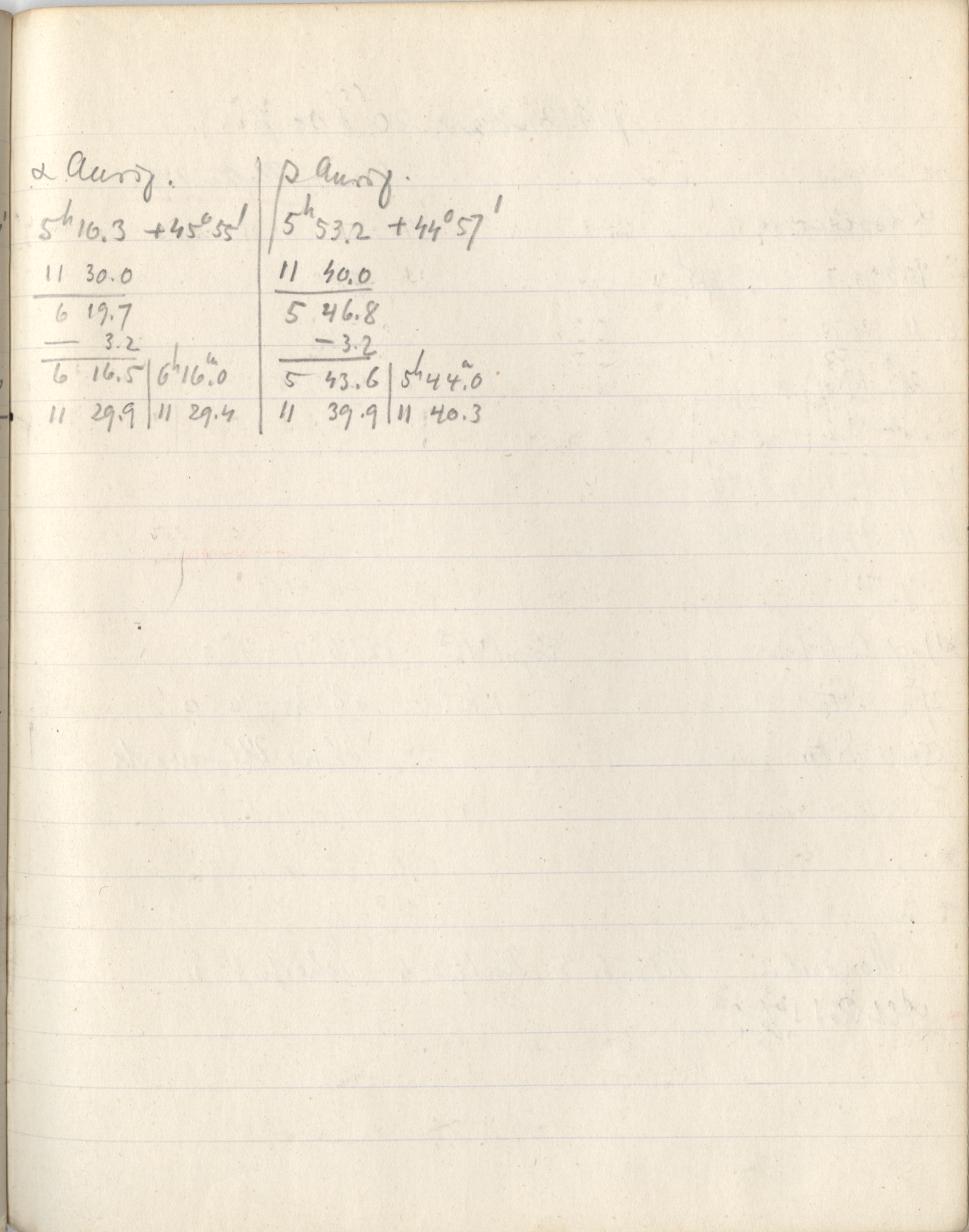 α Aurig.
5h 10.3 +45° 55'
11 30.0
6 19.7
— 3.2
6 16.5 | 6h 16m.0
11 29.9 | 11 29.4
β Aurig.
5h 53.2 +44° 57'
11 40.0
5 46.8
— 3.2
5 43.6 | 5h 44m.0
11 39.9 | 11 40.3